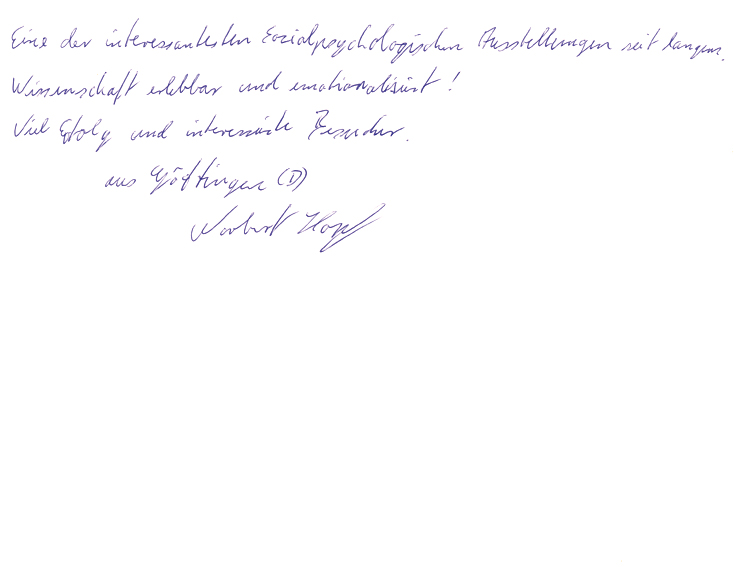 Eine der interessantesten Sozialpsychologischen Ausstellungen seit langem.
Wissenschaft erlebbar und emotionalisiert!
Viel Erfolg und interessierte Besucher.
aus Göttingen (D)
Norbert Hopf